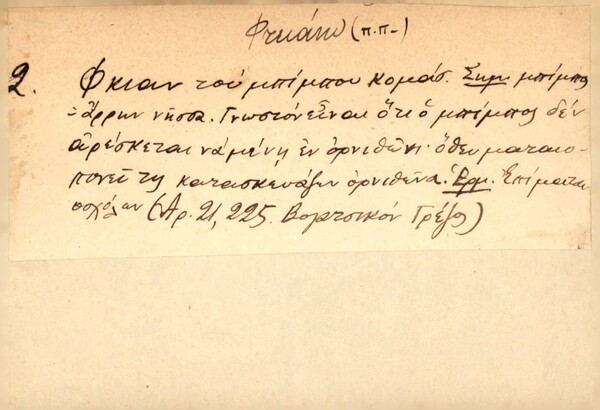 Φτιάνω (π.π-)
2. Φκιαν του μπίμπου κομάσ. Σημ μπίμπος
= ἄρρην νῆσσα. Γνωστόν εἶναι ὅτι ὁ μπίμπος δέν
ἀρέσκεται νά μένῃ ἐν ὀρνιθῶνι· ὅθεν ματαιο-
πονεῖ τις κατασκευάζων ὀρνιθῶνα. Ἑρμ. Ἐπί ματαιο-
(Ἀρ. 21, 225. Βογατσικόν Γρέζος)